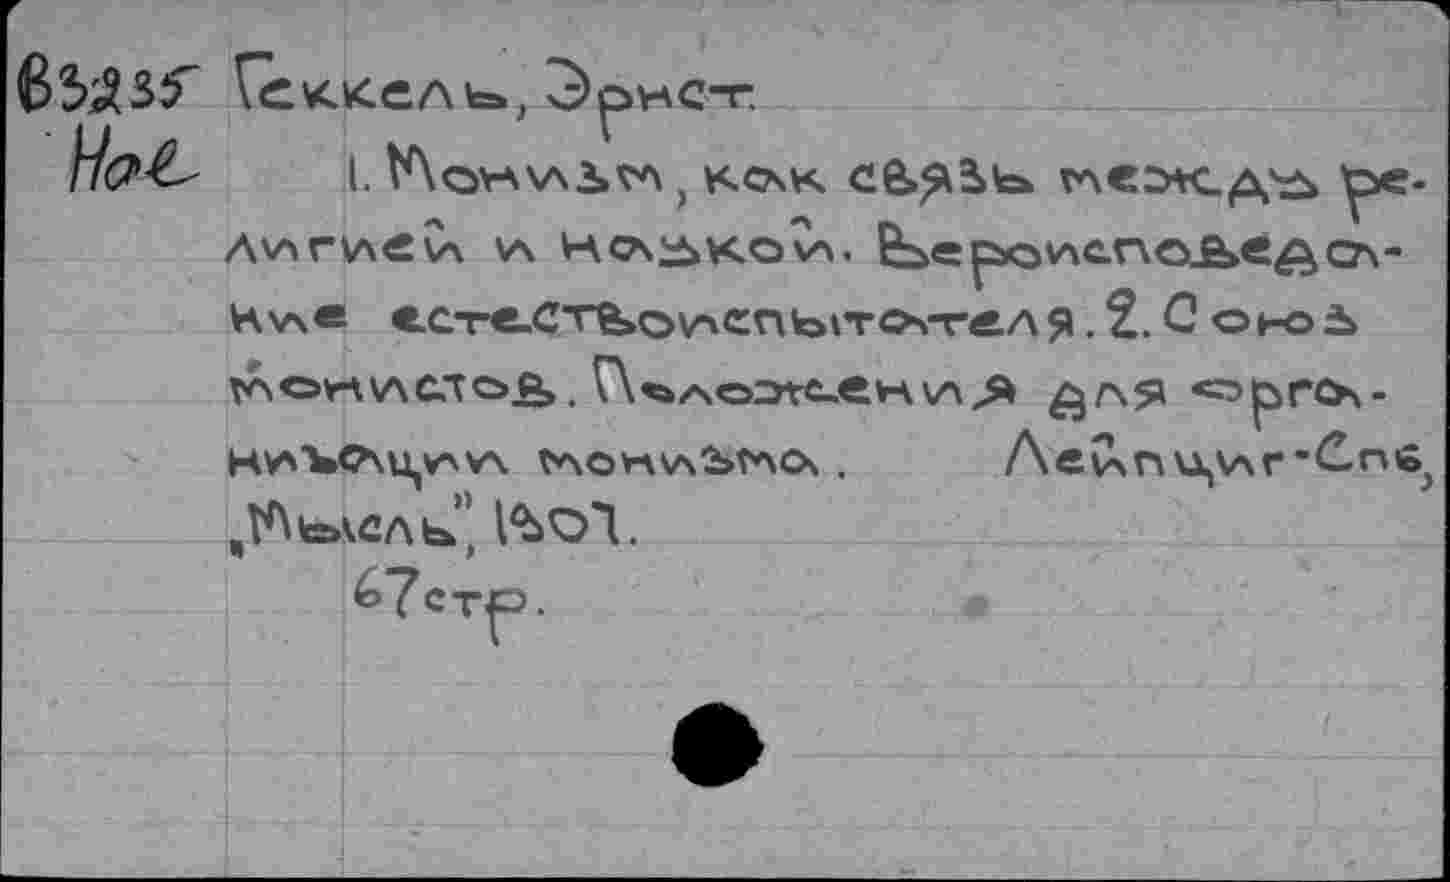 Геккель, Эрнст.
1. Монизм, как связь между ре-
лигией и наукой. Вероисповеда-
ние естествоиспытателя. 2. Союз
монистов. Положения для орга-
низации монизма. Лейпциг-Спб,
„Мысль", 1907.
67 стр.